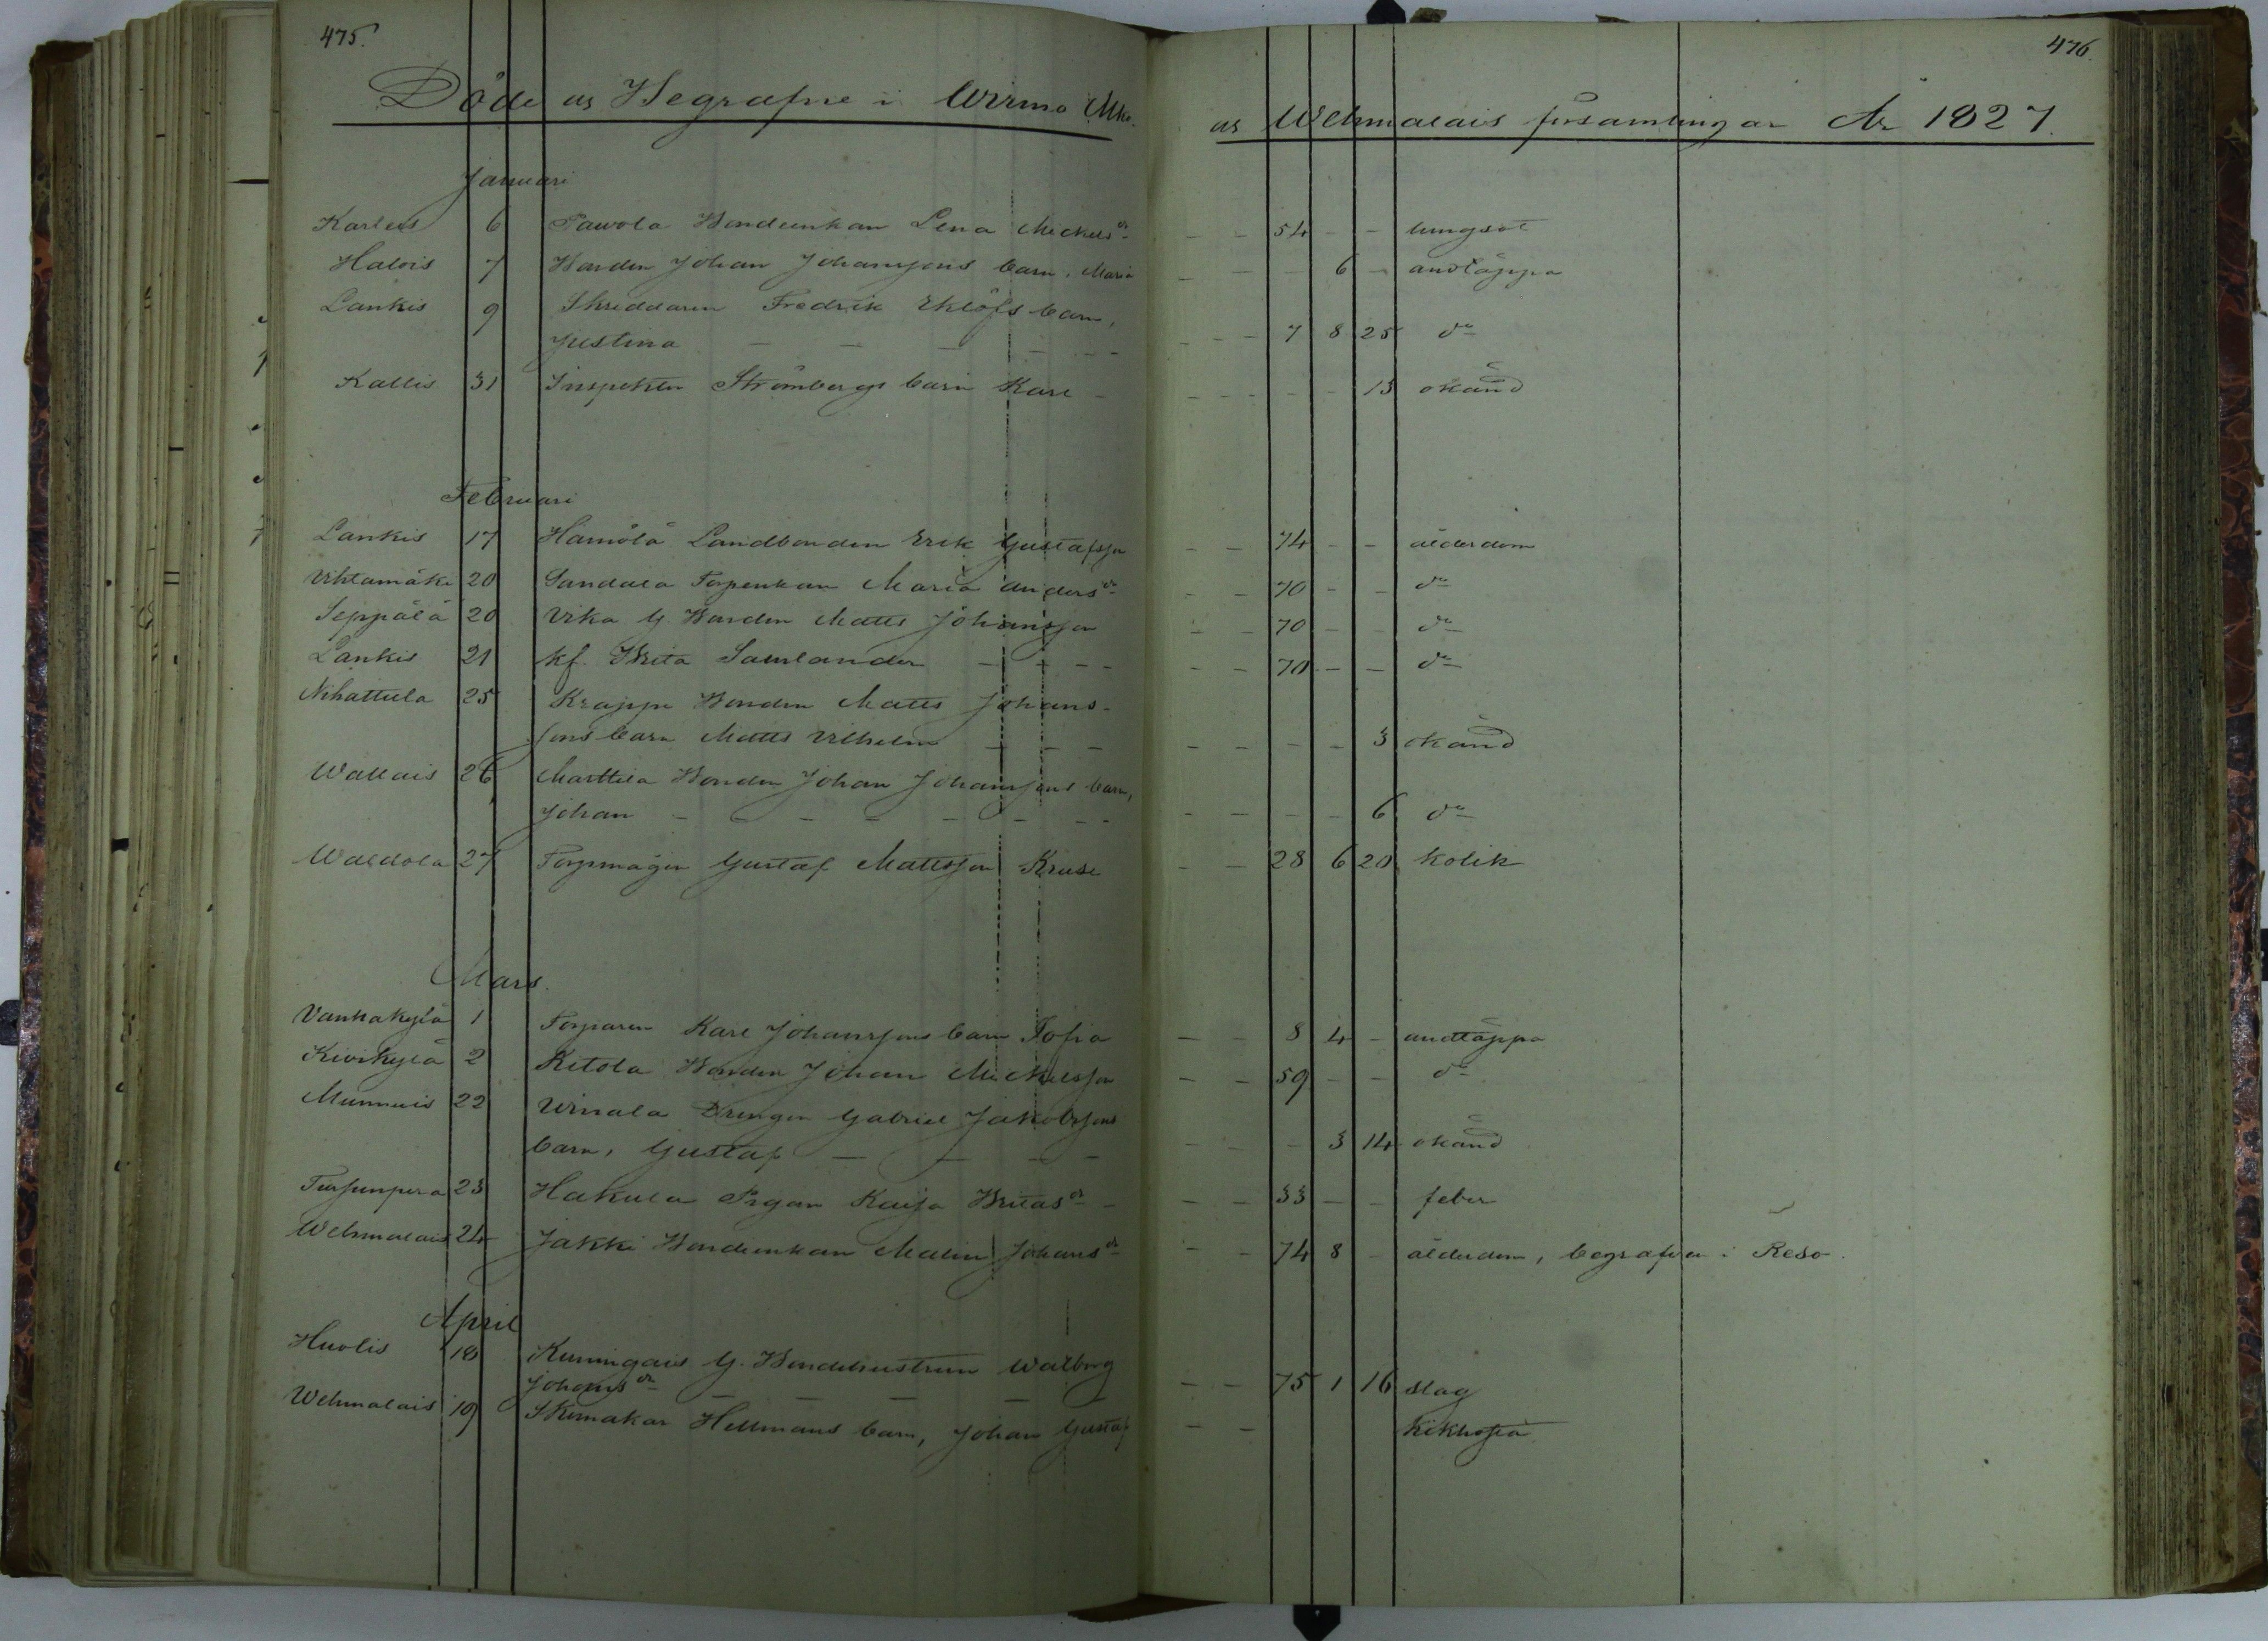 475.
476.
Döde och Begrafne i Wirmo Mkr. och Wehmalais församlingar År 1827.
Januari
Karleis 6 Pawola Bondeenkan Lena Mickelsdr - - 54 - - lungsot
Halois 7 Bonden Johan Johanssons barn, Maria - - - 6 - andtäppa
Lankis 9 Skreddaren Fredrik Eklöfs barn,
Justina - - - - - - 7 8 25 do
Kallis 31 Inspektor Strömbergs barn Karl - - - - - 13 okänd
Februari
Lankis 17 Hämölä Landbonden Erik Gustafsson - - 74 - - ålderdom
Vihtamäki 20 Sandala Torpenkan Maria Andersdr - - 70 - - do
Seppälä 20 Vika G. Bonden Matts Johansson - - 70 - - do
Lankis 21 kf. Brita Samlander - - - - - 70 - - do
Nihattula 25 Krappe Bonden Matts Johans-
sons barn Matts Vilhelm - - - - - - 3 okänd
Wallais 26 Marttila Bonden Johan Johanssons barn,
Johan - - - - - - - - - - 6 do
Waldola 27 Torpmågen Gustaf Mattsson Kruse - - 28 6 20 kolik
Mars.
Vanhakylä 1 Torparen Karl Johanssons barn Sofia - - 8 4 - andtäppa
Kivikylä 2 Kitola Bonden Johan Mickelsson - - 59 - - do
Munnuis 22 Winala Drengen Gabriel Jakobssons
barn, Gustaf - - - - - - 3 14 okänd
Tursunpera 23 Hakula Pigan Kaisa Britasdr - - - 33 - - feber
Wehmalais 24 Jakki Bondeenkan Malin Johansdr - - 74 8 - ålderdom, begrafven i Reso.
April
Huolis 18 Kuningais G. Bondehustrun Walborg
Johansdr - - - - - - 75 1 16 slag
Wehmalais 19 Skomakar Hellmans barn, Johan Gustaf - - kikhosta